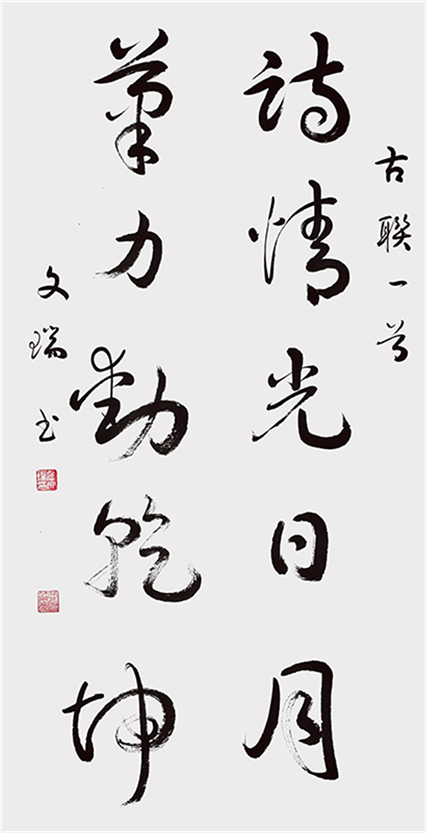 古聯一首
詩情光日月
筆力動乾坤
文瑞書